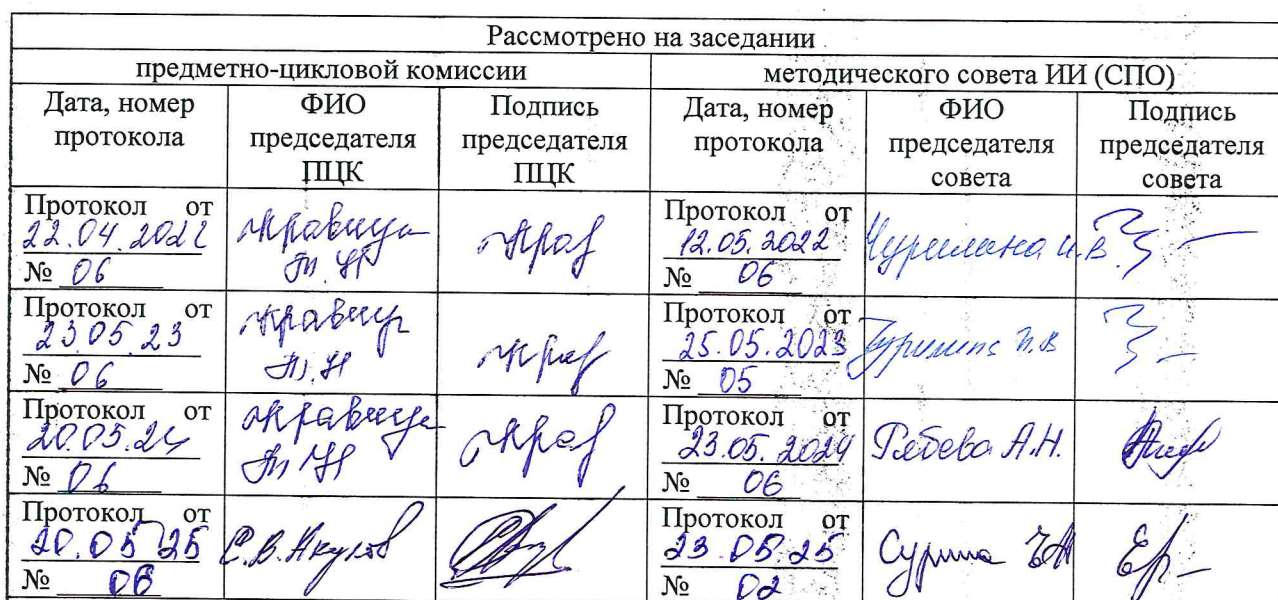 Рассмотрено на заседании
предметно-цикловой комиссии
методического совета ИИ (СПО)
Дата, номер протокола
ФИО председателя ПЦК
Подпись председателя ПЦК
Дата, номер протокола
ФИО председателя совета
Подпись председателя совета
Протокол от
22.04.2022
№ 06
Т.Н
Протокол от
12.05.2022
№ 06
Чурилина И.В.
Протокол от
23.05.23
№ 06
Т.Н
Протокол от
25.05.2023
№ 05
Чурилина И.В
Протокол от
20.05.24
№ 06
Т.Н
Протокол от
23.05.2024
№ 06
А.Н.
Протокол от
20.05.25
№ 06
С.В.Акулов
Протокол от
23.05.25
№ 02